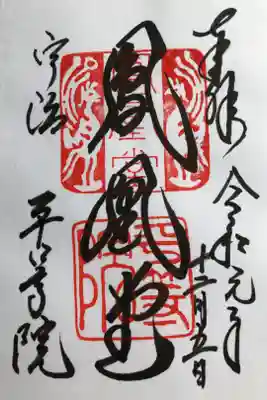 奉拝
令和元年
十二月五日
鳳凰堂
宇治
平等院